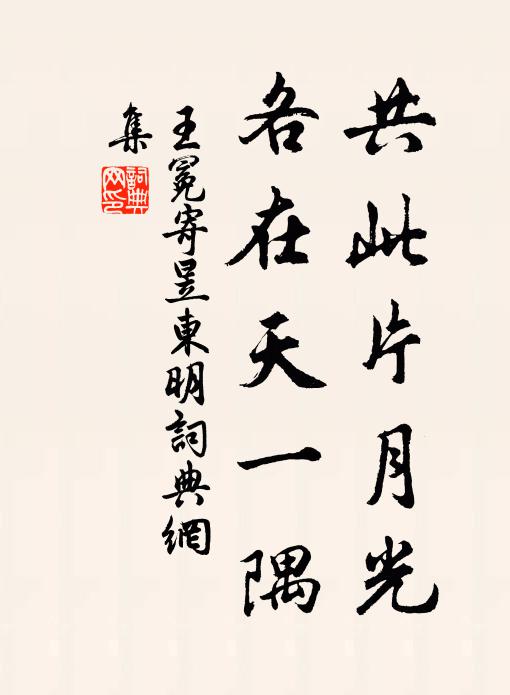 共此片月光
各在天一隅
王冕寄昱東明詞典網
集
詞典網印